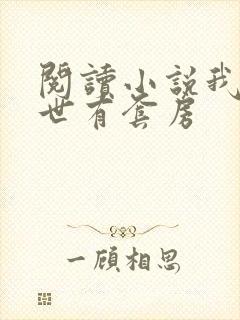 閱讀小說我
世有套房
一顧相思